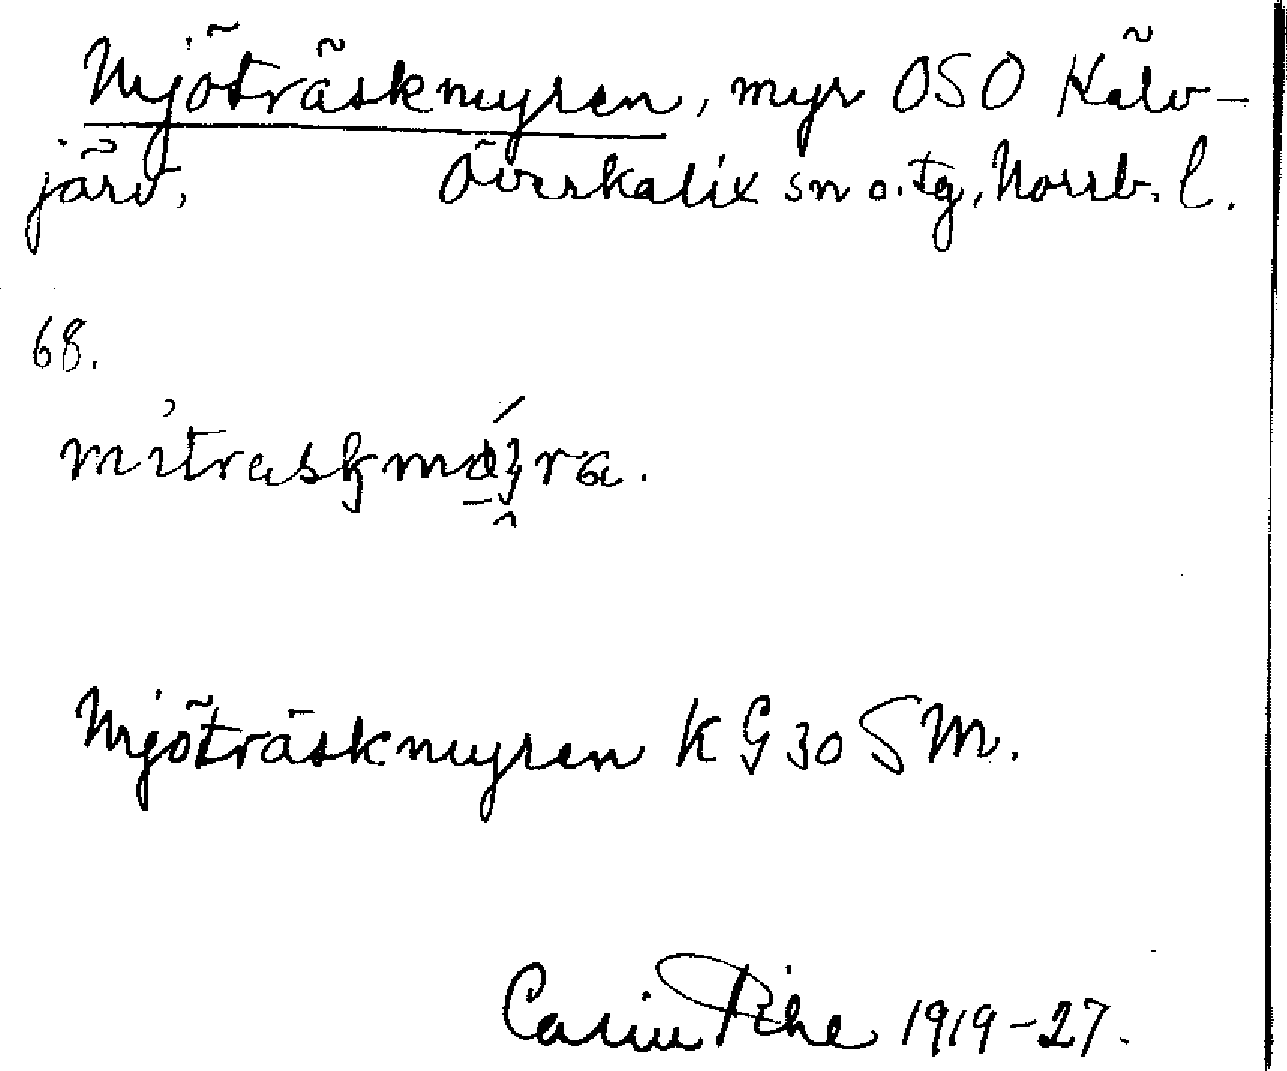 Mjöträskmyren, myr OSO Kälv-
järv, Överkalix sn o. tg, Norrb. l.
68.
Mjöträskmyren KG 30 SM.
Carin Pihl 1919-27.